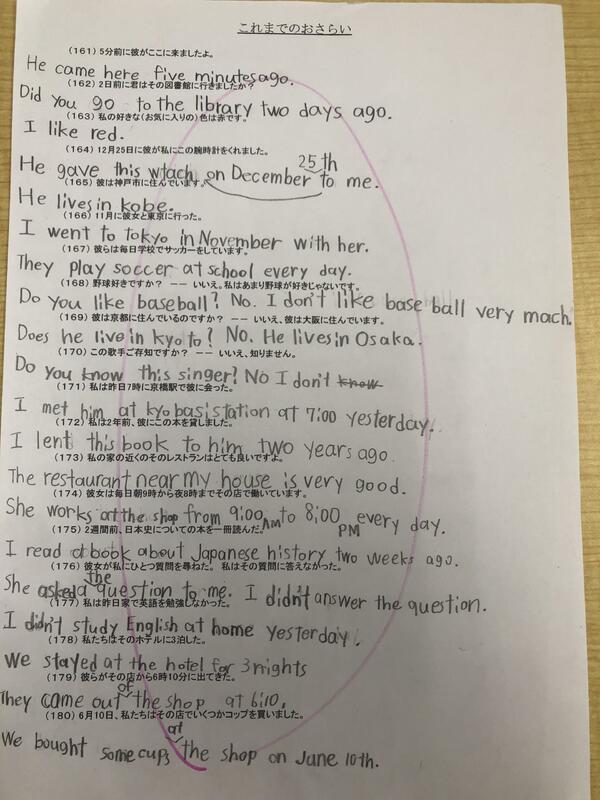 これまでのおさらい
(161) 5分前に彼がここに来ましたよ。
He came here five minutes ago.
(162) 2日前に君はその図書館に行きましたか?
Did you go to the library two days ago.
(163) 私の好きな(お気に入りの)色は赤です。
I like red.
(164) 12月25日に彼が私にこの腕時計をくれました。
25th
He gave this wtach on December to me.
(165) 彼は神戸市に住んでいます。
He lives in kobe.
(166) 11月に彼女と東京に行った。
I went to tokyo in November with her.
(167) 彼らは毎日学校でサッカーをしています。
They play soccer at school every day.
(168) 野球好きですか? ―― いいえ。私はあまり野球が好きじゃないです。
Do you like baseball? No. I don't like base ball very mach.
(169) 彼は京都に住んでいるのですか? ―― いいえ、彼は大阪に住んでいます。
Does he live in kyoto? No. He lives in Osaka.
(170) この歌手ご存知ですか? ―― いいえ、知りません。
Do you know this singer? No I don't know
(171) 私は昨日7時に京橋駅で彼に会った。
I met him at kyobasistation at 7:00 yesterday.
(172) 私は2年前、彼にこの本を貸しました。
I lent this book to him two years ago.
(173) 私の家の近くのそのレストランはとても良いですよ。
The restaurant near my house is very good.
(174) 彼女は毎日朝9時から夜8時までその店で働いています。
She works at the shop from 9:00 AM to 8:00 PM every day.
(175) 2週間前、日本史についての本を一冊読んだ。
I read a book about Japanese history two weeks ago.
(176) 彼女が私にひとつ質問を尋ねた。 私はその質問に答えなかった。
the
She asked a question to me. I didn't answer the question.
(177) 私は昨日家で英語を勉強しなかった。
I didn't study English at home yesterday.
(178) 私たちはそのホテルに3泊した。
We stayed at the hotel for 3 nights
(179) 彼らがその店から6時10分に出てきた。
of
They came out the shop at 6:10.
(180) 6月10日、私たちはその店でいくつかコップを買いました。
at
We bought some cups the shop on June 10th.